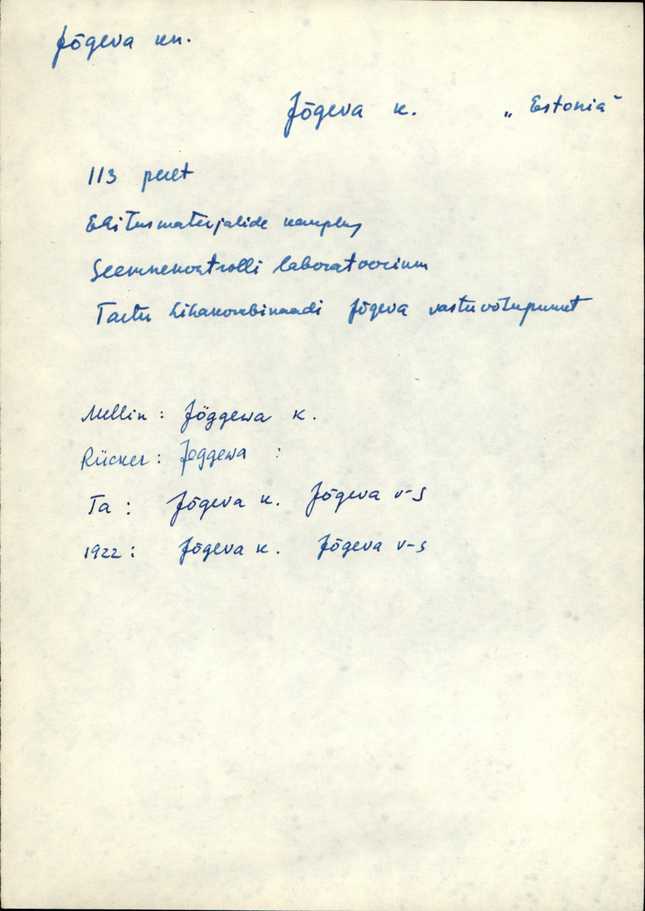 Jõgeva kn.
Jõgeva k. „Estonia"
113 peret
Ehitusmaterjalide kauplus
Seemnekontrolli laboratoorium
Tartu Lihakombinaadi Jõgeva vastuvõtupunkt
Mellin: Jöggewa k.
Rücker: Jöggewa :
Ta: Jõgeva k. Jõgeva v-s
1922: Jõgeva k. Jõgeva v-s